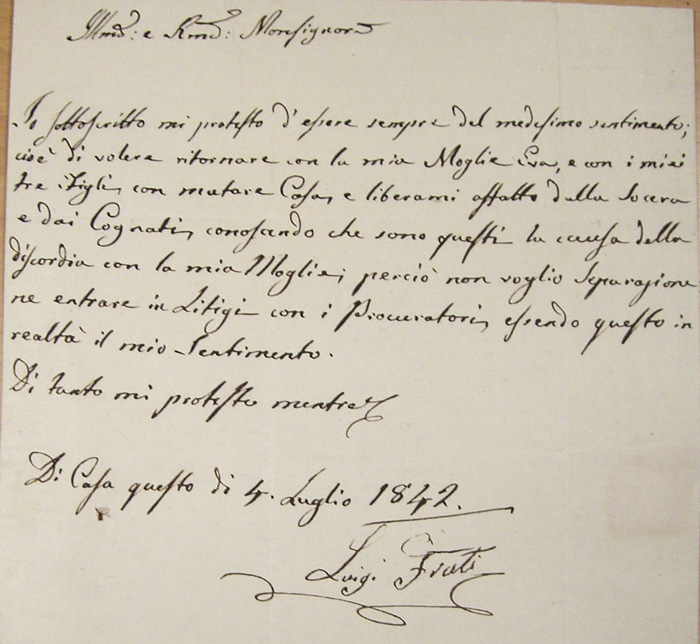 Illmo: e Rmo: Monsignore
Io sottoscritto mi protesto d'essere sempre del medesimo sentimento;
cioè di volere ritornare con la mia Moglie Eva, e con i miei
tre Figli, con mutare Casa, e liberami affatto dalla Socera
e dai Cognati, conoscendo che sono questi la causa della
discordia con la mia Moglie; perciò non voglio Separazione
ne entrare in Litigi con i Procuratori, essendo questo in
realtà il mio Sentimento.
Di tanto mi protesto mentre
Di Casa questo dì 4. Luglio 1842.
Luigi Frati